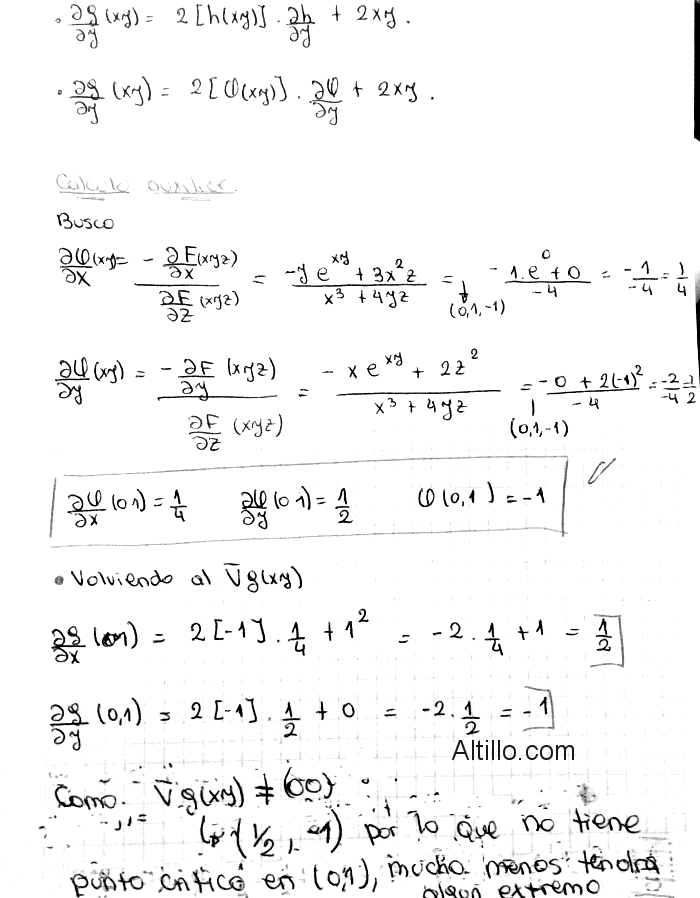 • ∂g/∂y (xy) = 2 [h(xy)] . ∂h/∂y + 2xy .
• ∂g/∂y (xy) = 2 [φ(xy)] . ∂φ/∂y + 2xy .
Calculo auxiliar.
Busco
∂φ/∂x (xy) = - ∂F/∂x (xyz) / ∂F/∂z (xyz) = -y e^xy + 3x² z / x³ + 4yz = ↓ (0,1,-1) -1.e^0 + 0 / -4 = -1/-4 = 1/4
∂φ/∂y (xy) = - ∂F/∂y (xyz) / ∂F/∂z (xyz) = - x e^xy + 2z² / x³ + 4yz = ↓ (0,1,-1) -0 + 2(-1)² / -4 = -2/-4 = 1/2
∂φ/∂x (01) = 1/4 ∂φ/∂y (01) = 1/2 φ(0,1) = -1
• Volviendo al ∇g(xy)
∂g/∂x (0,1) = 2 [-1] . 1/4 + 1² = -2 . 1/4 + 1 = 1/2
∂g/∂y (0,1) = 2 [-1] . 1/2 + 0 = -2 . 1/2 = -1
Altillo.com
Como ∇g(xy) ≠ (00)
↳ (1/2, -1) por lo que no tiene
punto critico en (0,1), mucho menos tendra
algun extremo